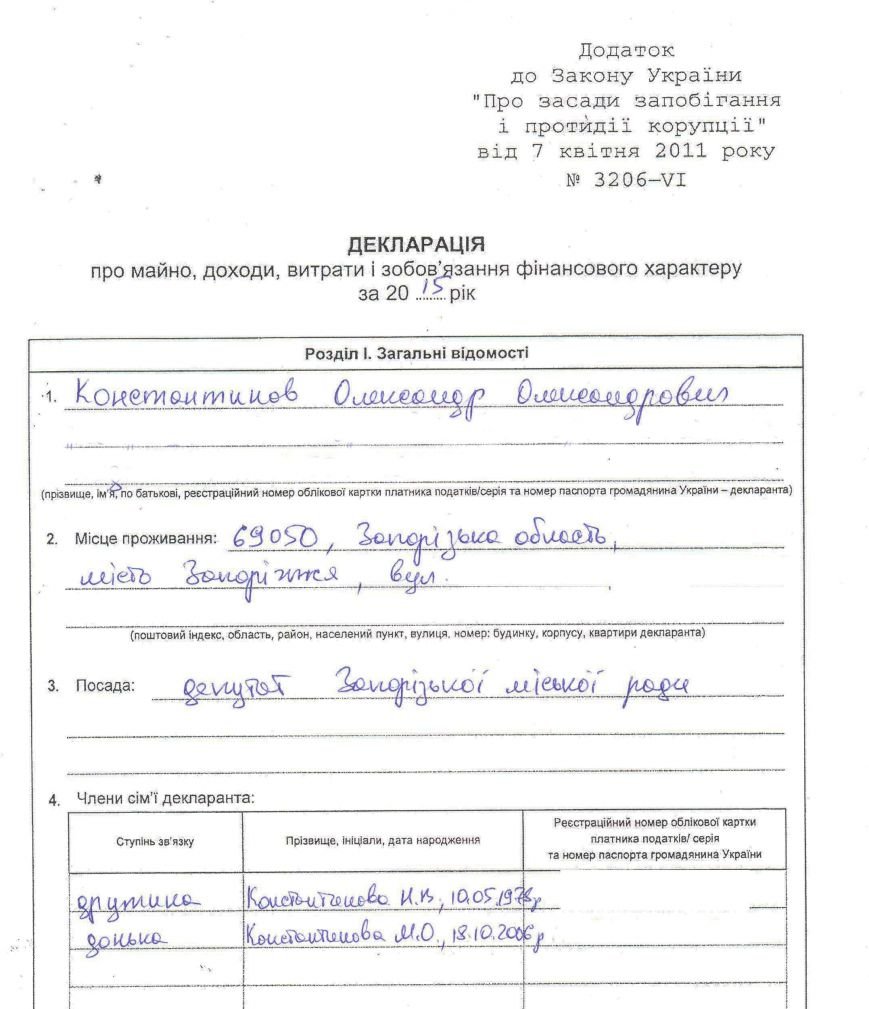 Додаток
до Закону України
"Про засади запобігання
і протидії корупції"
від 7 квітня 2011 року
№ 3206-VI
ДЕКЛАРАЦІЯ
про майно, доходи, витрати і зобов'язання фінансового характеру
за 20 15 рік
Розділ I. Загальні відомості
1. Константинов Олександр Олександрович
(прізвище, ім'я, по батькові, реєстраційний номер облікової картки платника податків/серія та номер паспорта громадянина України – декларанта)
2. Місце проживання: 69050, Запорізька область,
місто Запоріжжя, вул.
(поштовий індекс, область, район, населений пункт, вулиця, номер: будинку, корпусу, квартири декларанта)
3. Посада: депутат Запорізької міської ради
4. Члени сім'ї декларанта:
Ступінь зв'язку Прізвище, ініціали, дата народження Реєстраційний номер облікової картки
платника податків/ серія
та номер паспорта громадянина України
дружина Константинова Н.В., 10.05.1978р
донька Константинова М.О., 18.10.2006р